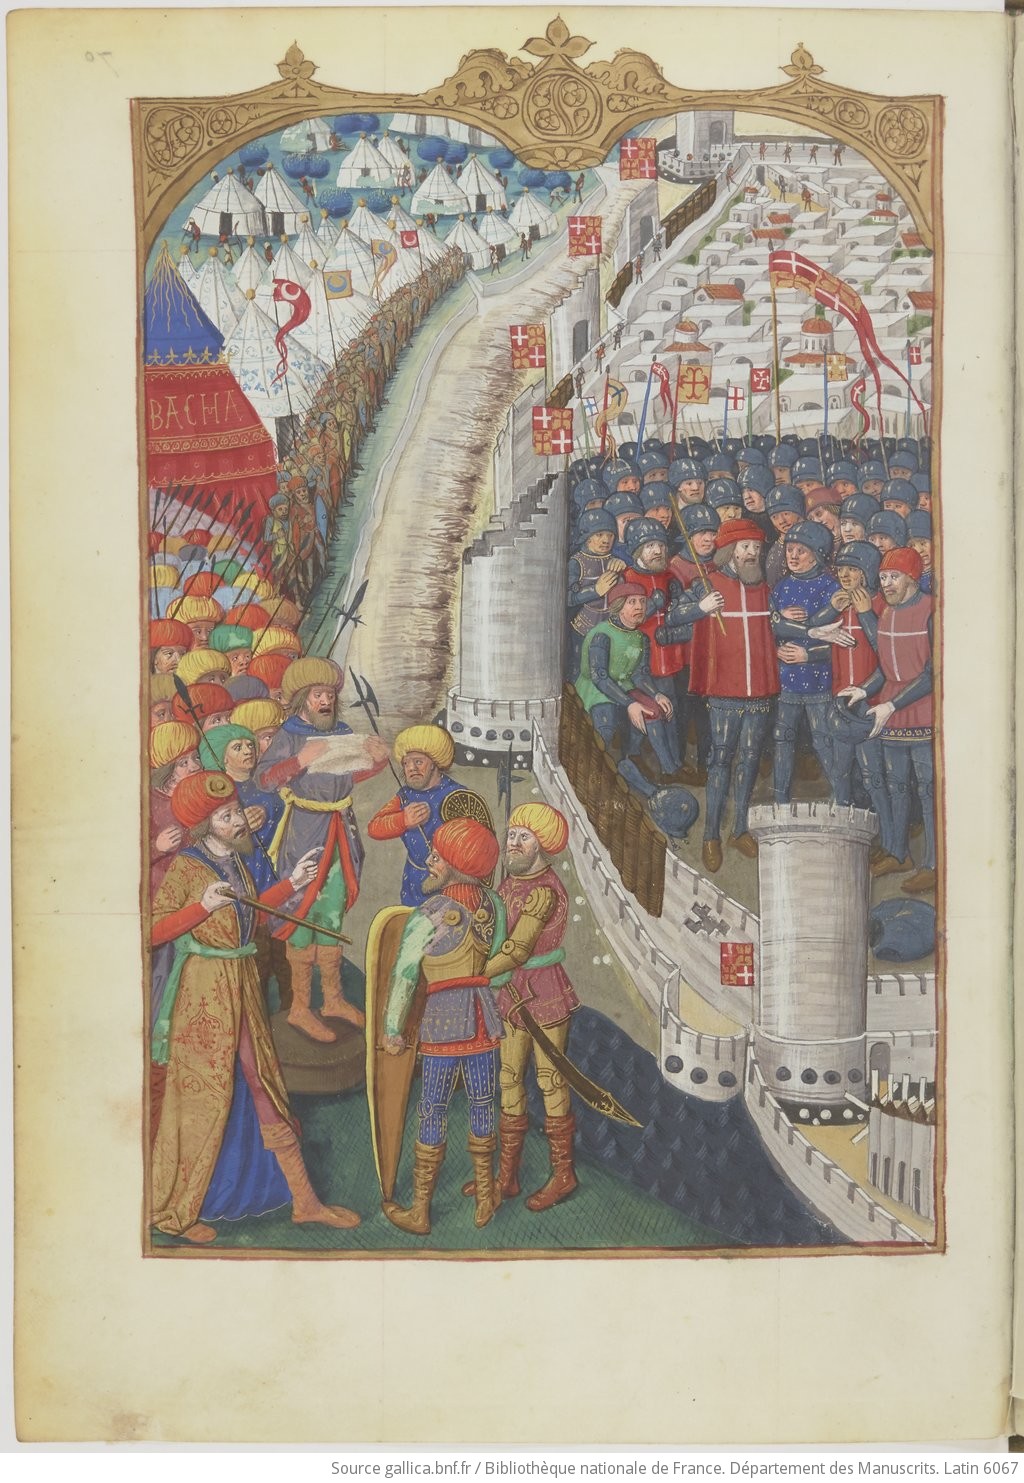 BACHA
Source gallica.bnf.fr / Bibliothèque nationale de France. Département des Manuscrits. Latin 6067